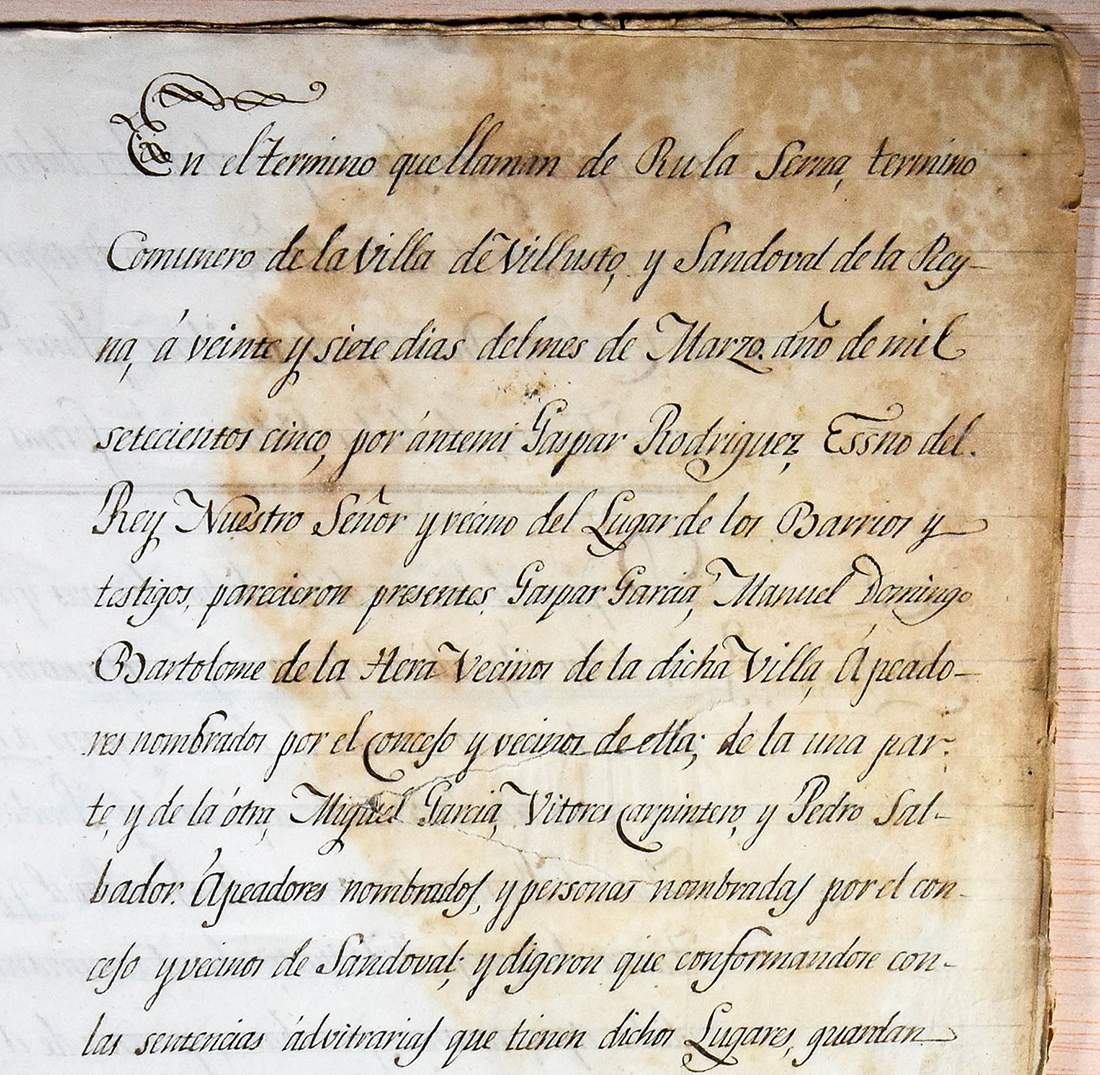 En el termino que llaman de Rula Serna, termino
Comunero de la Villa de Villusto, y Sandoval de la Rey-
na, á veinte y siete dias del mes de Marzo. año de mil
setecientos cinco, por ántemi Gaspar Rodriguez, Essno del.
Rey Nuestro Señor y vecino del Lugar de los Barrios y
testigos, parecieron presentes, Gaspar Garcia, Manuel Domingo
Bartolome de la Hera Vecinos de la dicha Villa, Ápeado-
res nombrados por el Concejo y vecinos de ella; de la una par-
te, y de la ótra, Miguel Garcia, Vitores Carpintero, y Pedro Sal-
bador. Ápeadores nombrados, y personas nombradas por el con-
cejo y vecinos de Sandoval; y digeron que conformandose con-
las sentencias ádvitrarias que tienen dichos Lugares, guardan